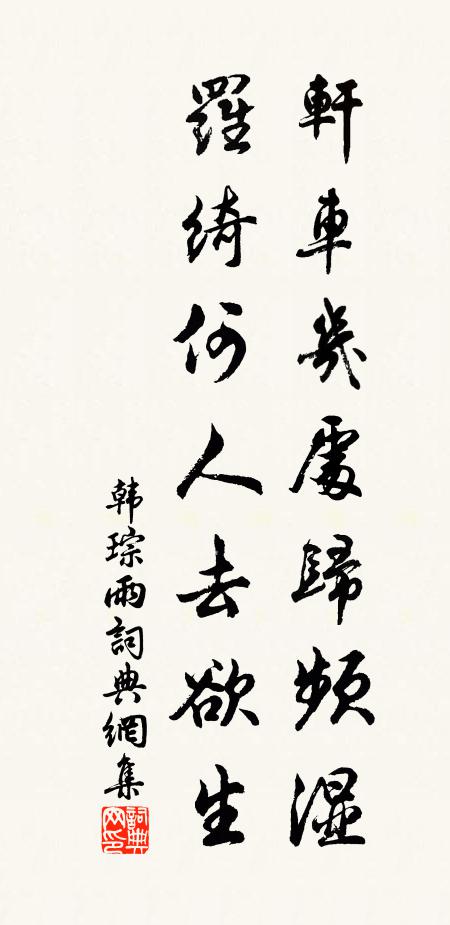 軒車幾處歸頻濕
羅綺何人去欲生
韩琮雨詞典網集
詞典网印